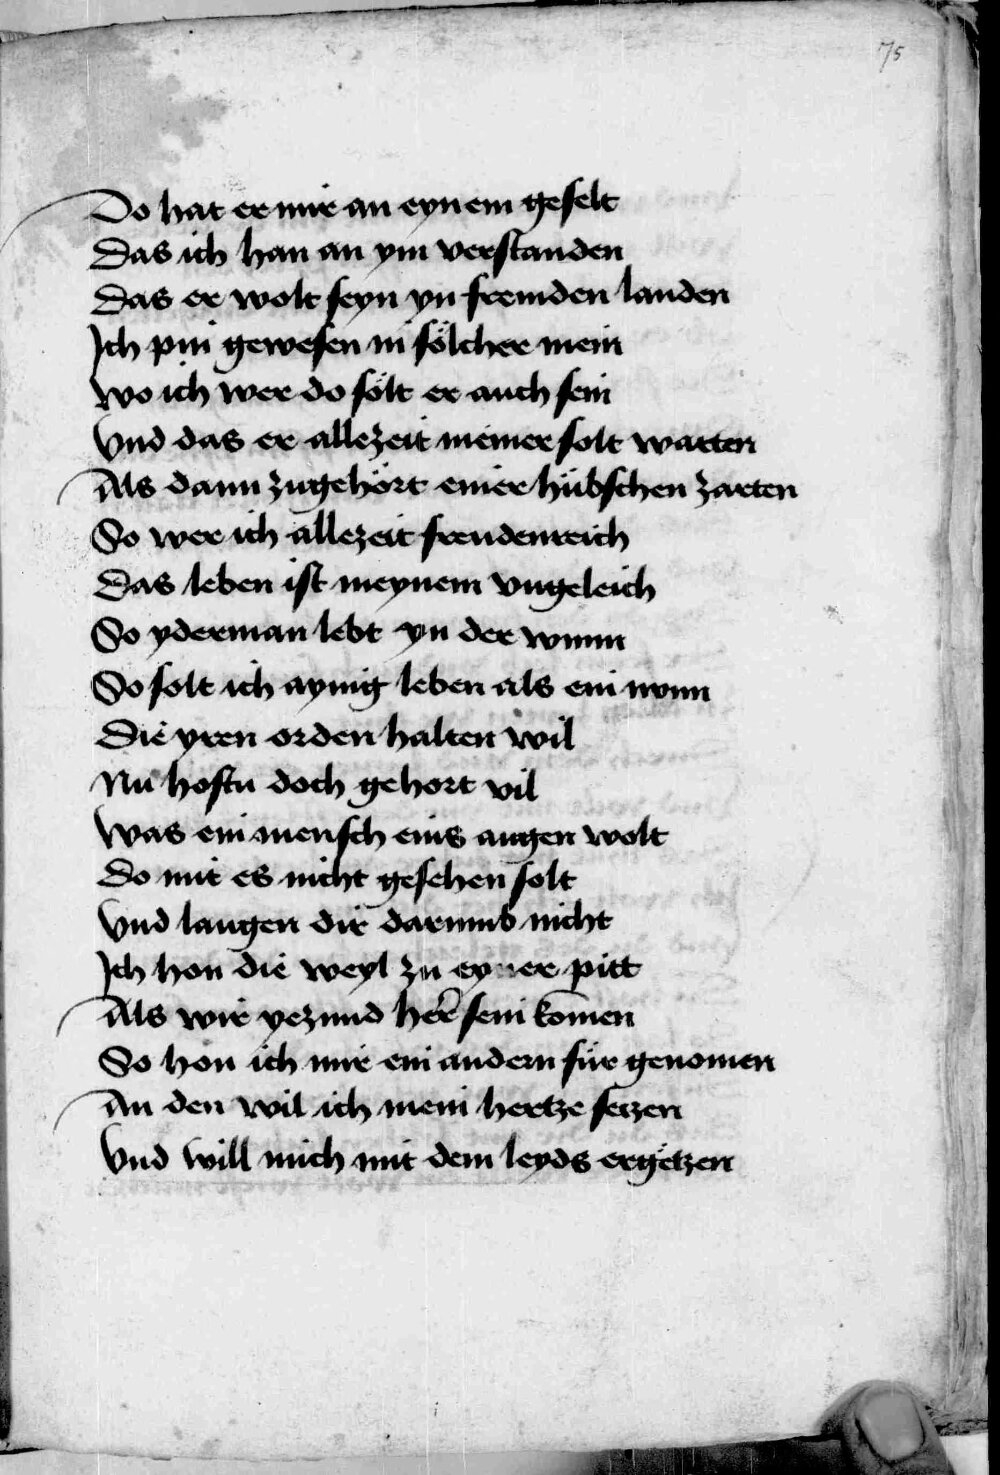 75
Do hat er mir an eynem gefelt
Das ich han an ym verstanden
Das er wolt seyn yn fremden landen
Ich pin gewesen in sölcher mein
wo ich wer do sölt er auch sein
Vnd das er allezeit meiner solt warten
Als dann zugehört einer hübschen zarten
So wer ich allezeit freudenreich
Das leben ist meynem vngeleich
So yderman lebt yn der wunn
So solt ich aynig leben als ein nonn
Die yren orden halten wil
Nu hostu doch gehort vil
was ein mensch eins augen wolt
Do mit es nicht gesehen solt
Vnd laugen dir darumb nicht
Ich hon die weyl zu eyner pitt
Als wir yezund her sein komen
So hon ich mir ein andern für genomen
An den wil ich mein hertze setzen
Vnd will mich mit dem leyds ergetzen